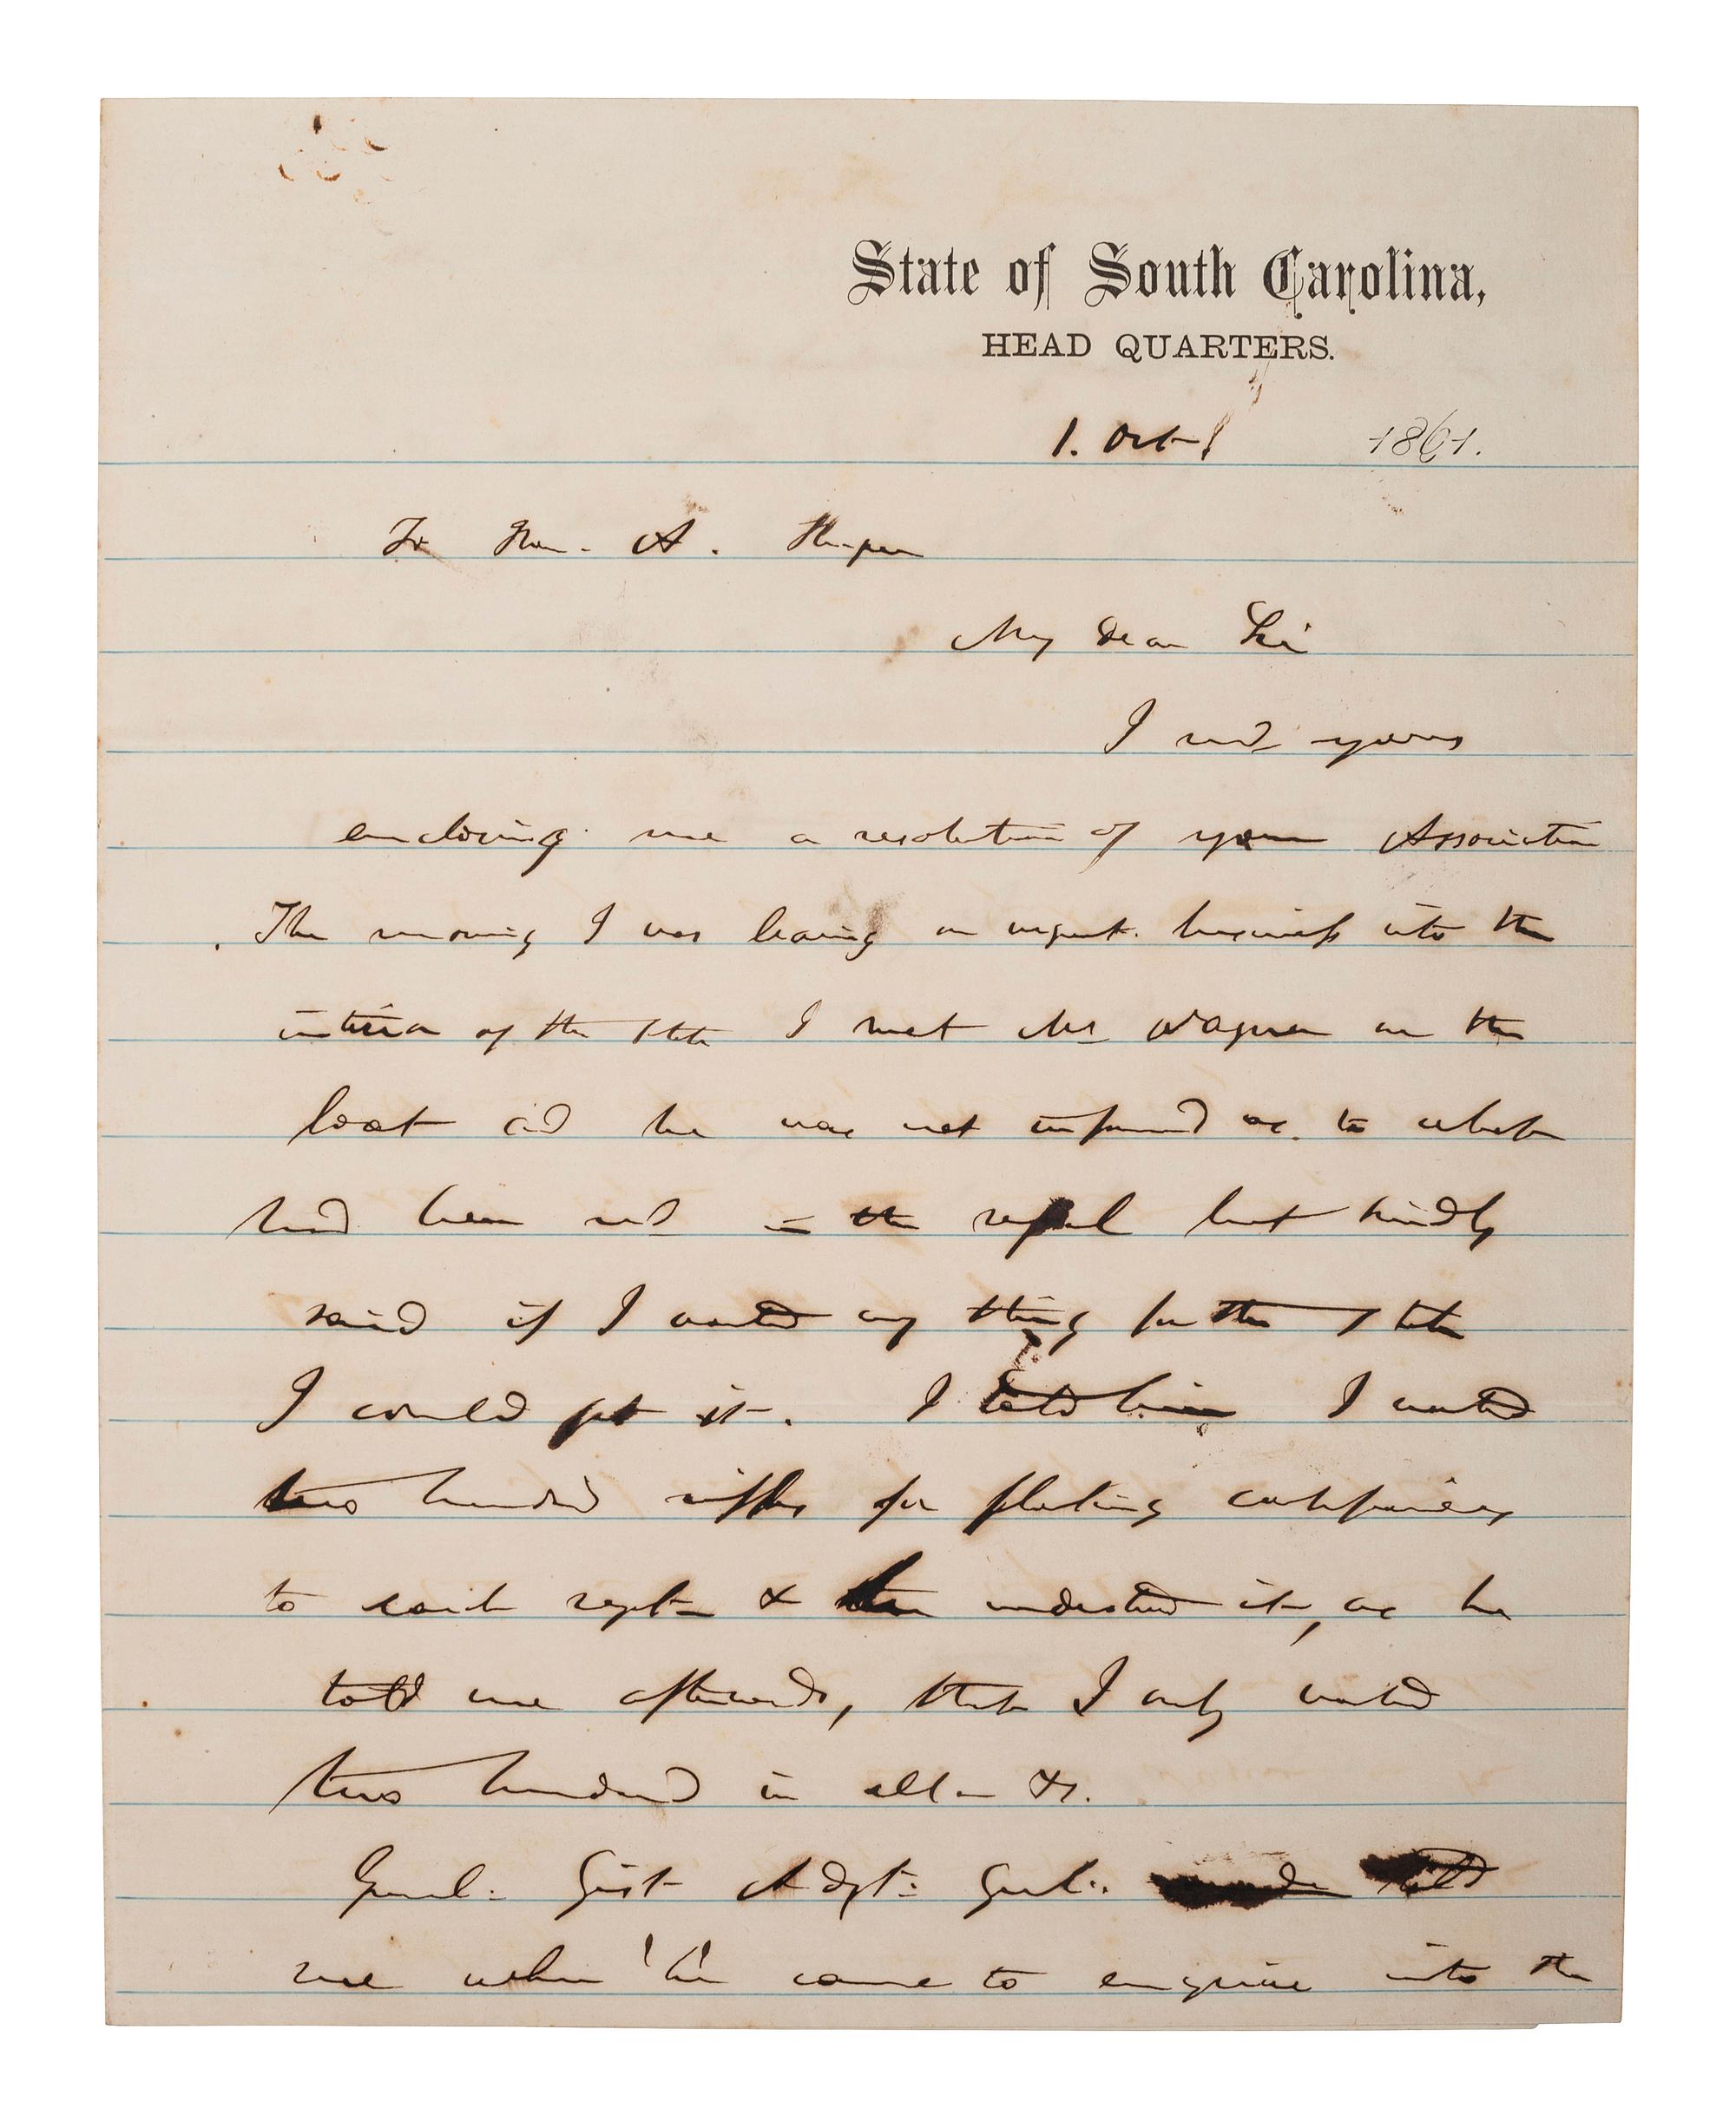 State of South Carolina,
HEAD QUARTERS.
1. Oct 1861.
To Hon. A.
My Dear Sir
I recd yours
enclosing me a resolution of your Association
The morning I was leaving on urgent business into the
interior of the State I met Mr Wagner on the
boat and he was not informed as to what
had been recd in the but kindly
said if I wanted any thing for the State
I could get it. I told him I wanted
two hundred rifles for flanking companies
to each regt & he understood it, as he
told me afterwards, that I only wanted
two hundred in all - &c.
Genl. Gist Adjt: Genl. told
me when he came to enquire into the